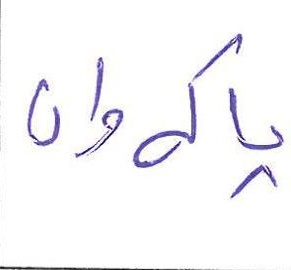 پاکو وان